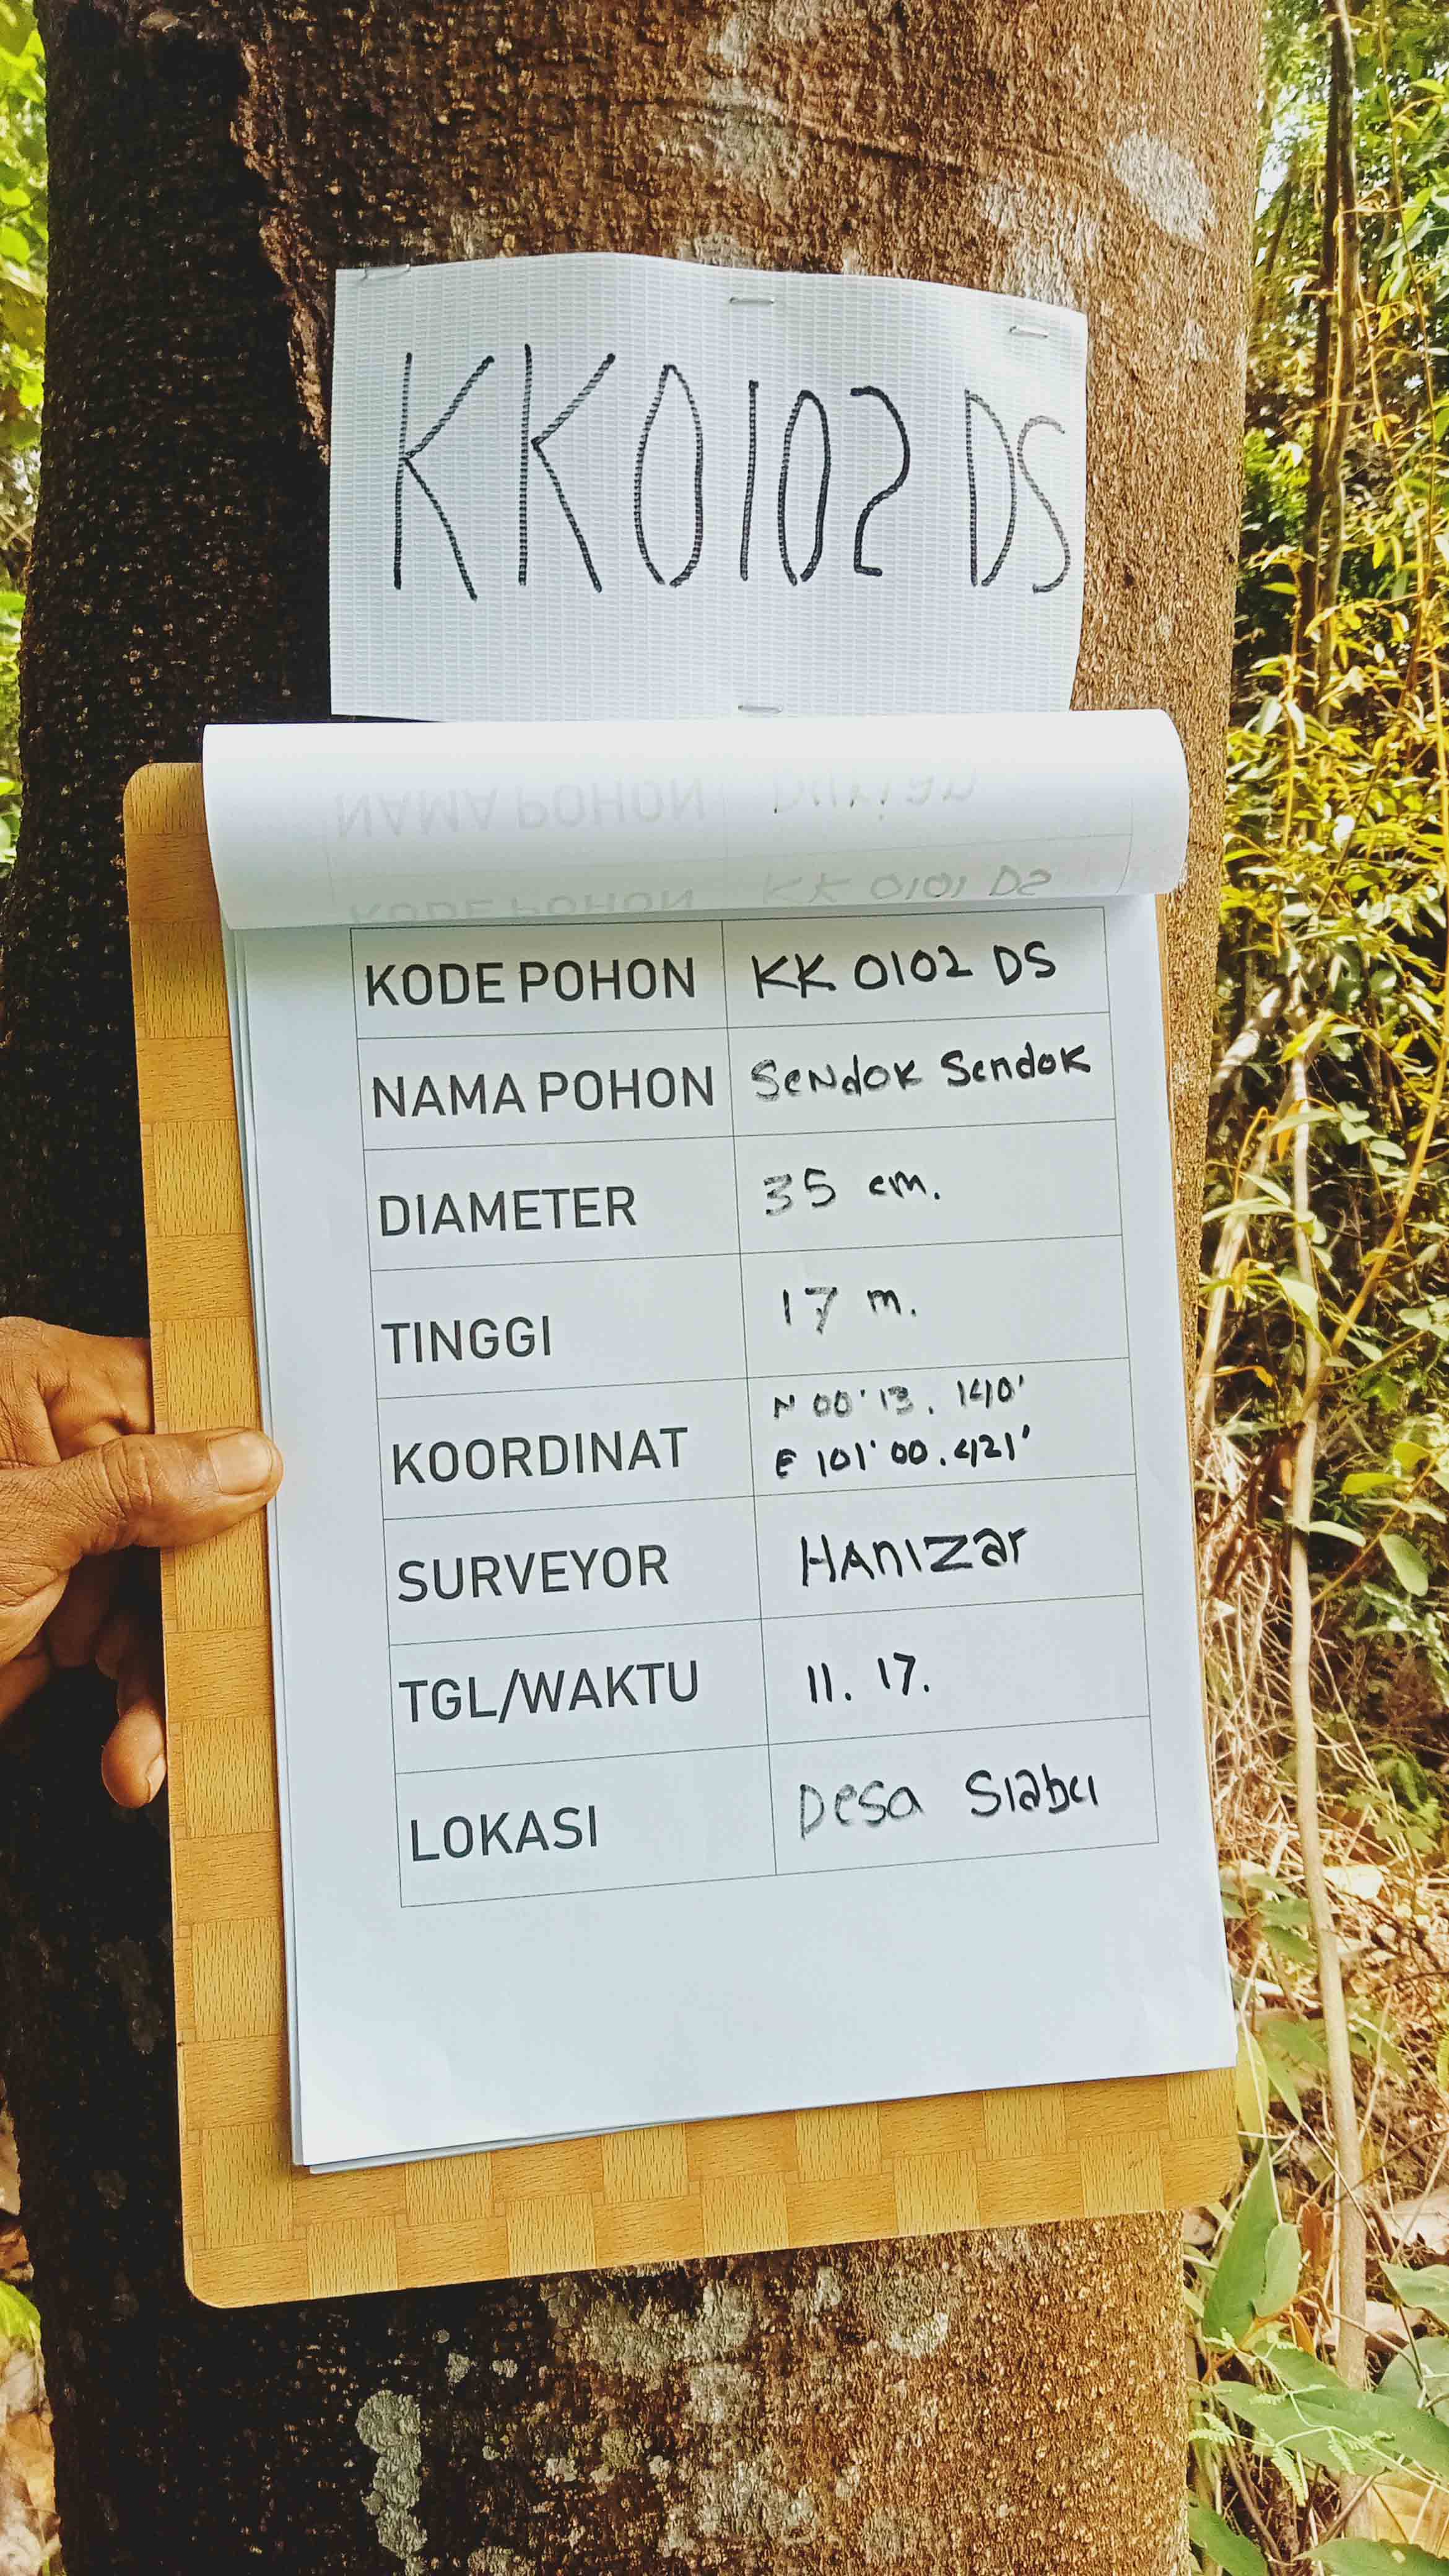 KK0102 DS
NAMA POHON Durian
KODE POHON KK 0101 DS
KODE POHON KK 0102 DS
NAMA POHON SeNdOK SendOK
DIAMETER 35 cm.
TINGGI 17 m.
KOORDINAT N 00' 13. 140'
E 101' 00. 421'
SURVEYOR HAnIZar
TGL/WAKTU 11. 17.
LOKASI Desa SIabu